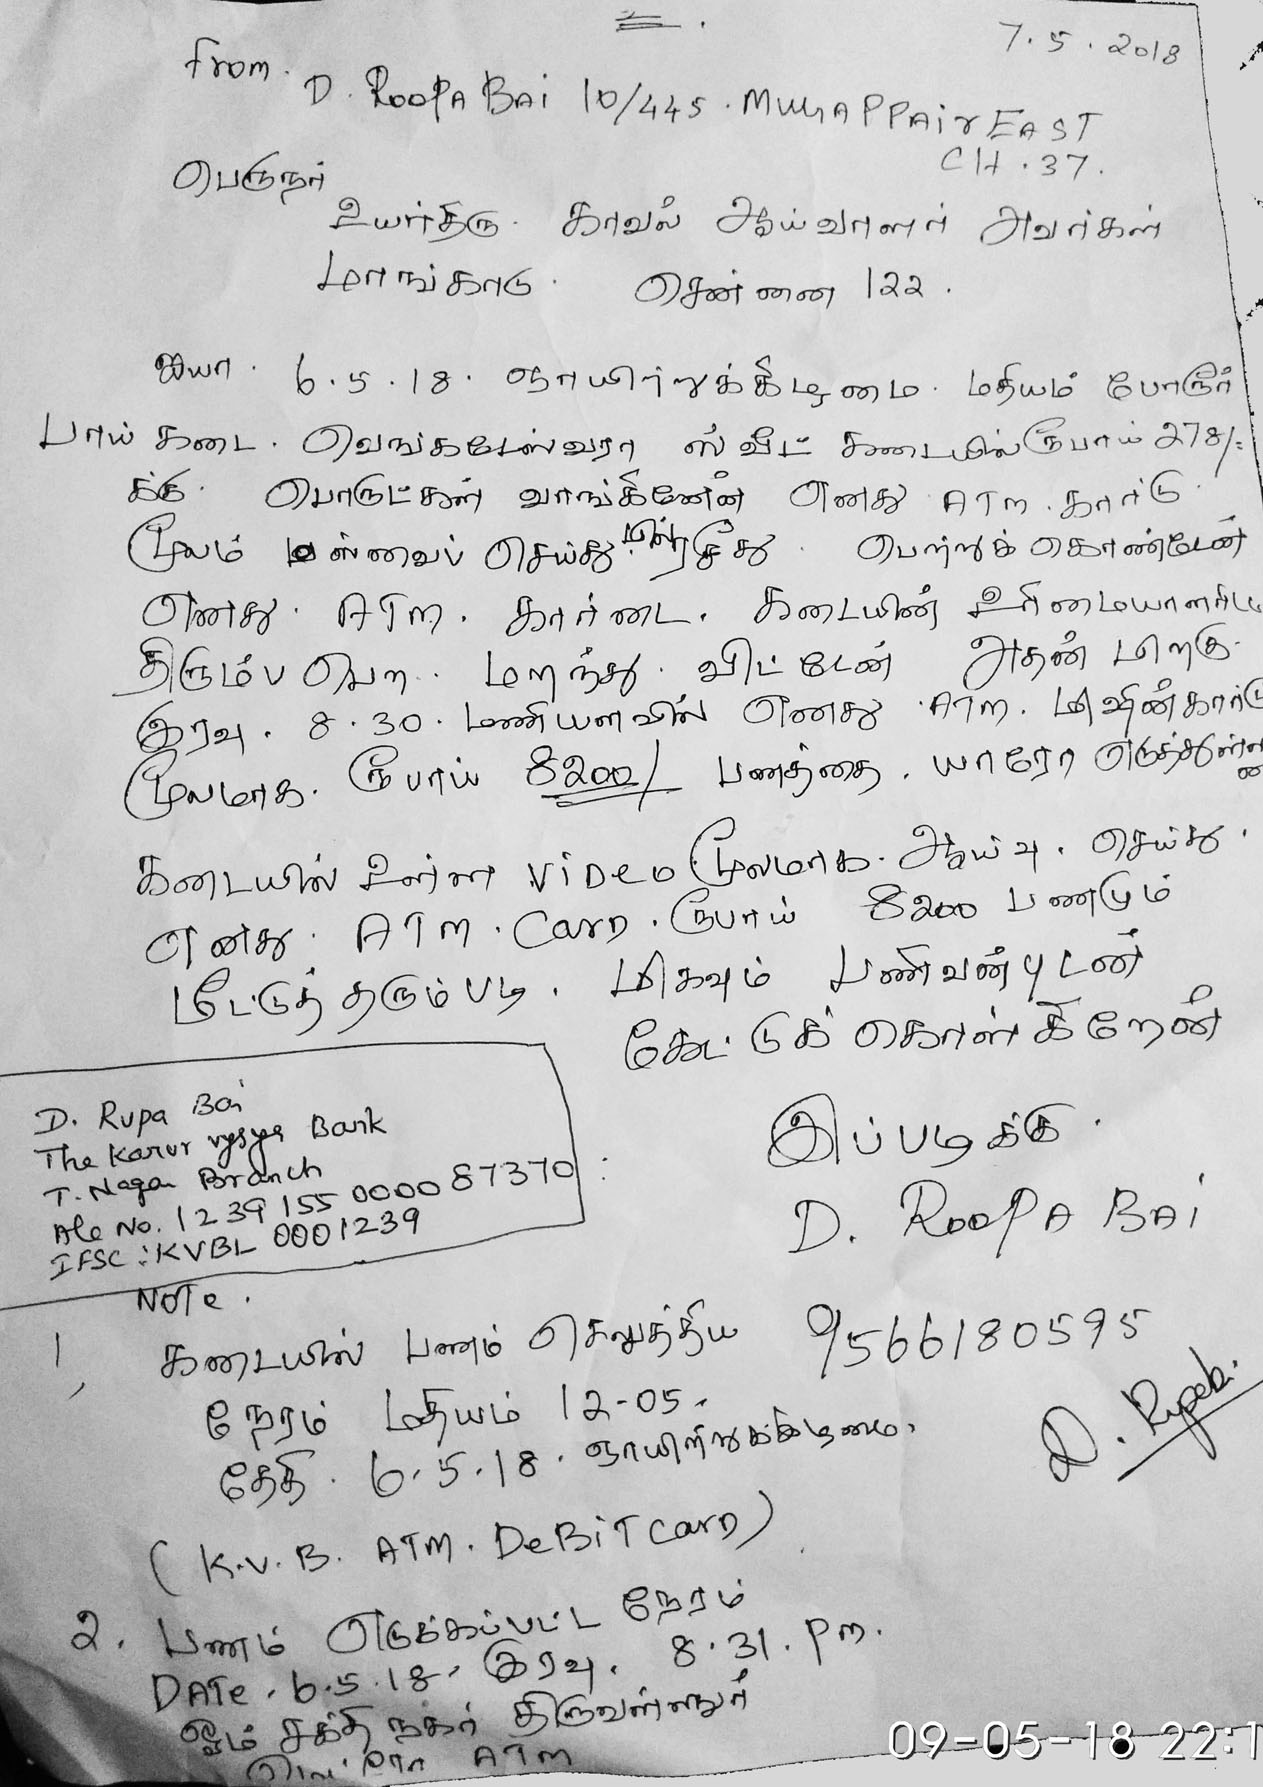 7.5.2018
From.
D. ROOPA BAi 10/445. MUGAPPAir EAST
CH.37.
பெருநர்
உயர்திரு. காவல் ஆய்வாளர் அவர்கள்
மாங்காடு. சென்னை 122.
ஐயா. 6.5.18. ஞாயிற்றுக்கிழமை. மதியம் போரூர்
பாய் கடை. வெங்கடேஸ்வரா ஸ்வீட் கடையில் ரூபாய் 278/-
க்கு. பொருட்கள் வாங்கினேன் எனது ATM. கார்டு.
மூலம் ஸ்வைப் செய்து பின் ரசீது. பெற்றுக் கொண்டேன்
எனது. ATM. கார்டை. கடையின் உரிமையாளரிட
திரும்ப பெற. மறந்து. விட்டேன் அதன் பிறகு.
இரவு. 8.30. மணியளவில் எனது ATM. மிஷின் கார்டு
மூலமாக. ரூபாய் 8200/ பணத்தை. யாரோ எடுத்துள்ள
கடையில் உள்ள VIDeo மூலமாக. ஆய்வு. செய்து.
எனது. ATM. CarD. ரூபாய் 8200 பணமும்
மீட்டுத் தரும்படி. மிகவும் பணிவன்புடன்
கேட்டுக் கொள்கிறேன்
இப்படிக்கு.
D. ROOPA BAi
D. Rupa Bai
The Karur vysya Bank
T. Nagar Branch
A/c No. 1239 155 0000 87370
IFSC : KVBL 0001239
NoTe.
1, கடையில் பணம் செலுத்திய
நேரம் மதியம் 12-05.
தேதி. 6.5.18. ஞாயிற்றுக்கிழமை.
9566180595
(K.V.B. ATM. DeBiT CarD)
2. பணம் எடுக்கப்பட்ட நேரம்
DATe. 6.5.18. இரவு. 8.31. Pm.
ஓம் சக்தி நகர் திருவள்ளூர்
ATM
09-05-18 22:1